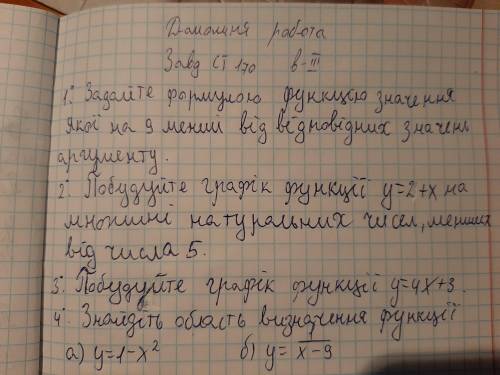 Домашня робота
Завд ст 170 в-III
1. Задайте формулою функцію значення
якої на 9 менші від відповідних значень
аргументу.
2. Побудуйте графік функції y=2+x на
множині натуральних чисел, менших
від числа 5.
3. Побудуйте графік функції y=4x+3.
4. Знайдіть область визначення функції
а) y=1-x² б) y=1/(x-9)